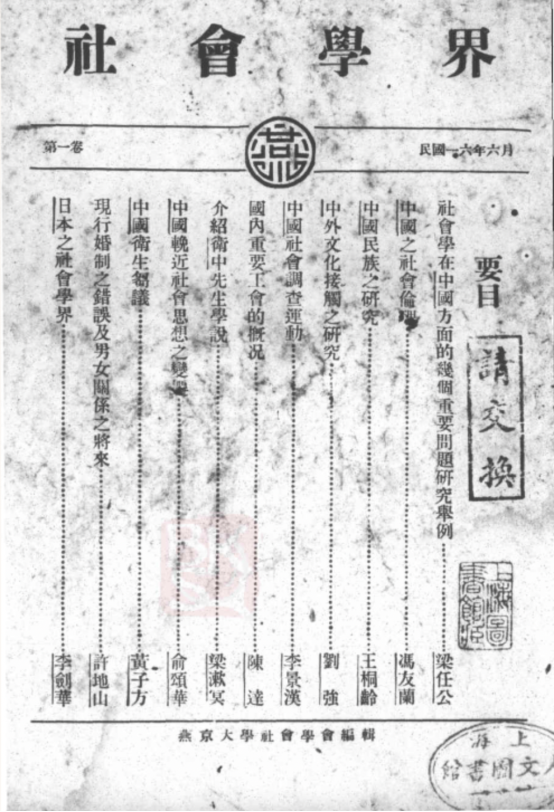 社會學界
第一卷
燕
民國一六年六月
要目
請交換
社會學在中國方面的幾個重要問題研究舉例 梁任公
中國之社會倫 馮友蘭
中國民族之研究 王桐齡
中外文化接觸之研究 劉強
中國社會調查運動 李景漢
國內重要工會的概况 陳達
介紹衛中先生學說 梁漱冥
中國輓近社會思想之變 俞頌華
中國衛生芻議 黃子方
現行婚制之錯誤及男女關係之將來 許地山
日本之社會學界 李劍華
上海圖書館
燕京大學社會學會編輯
上海
文圖書館